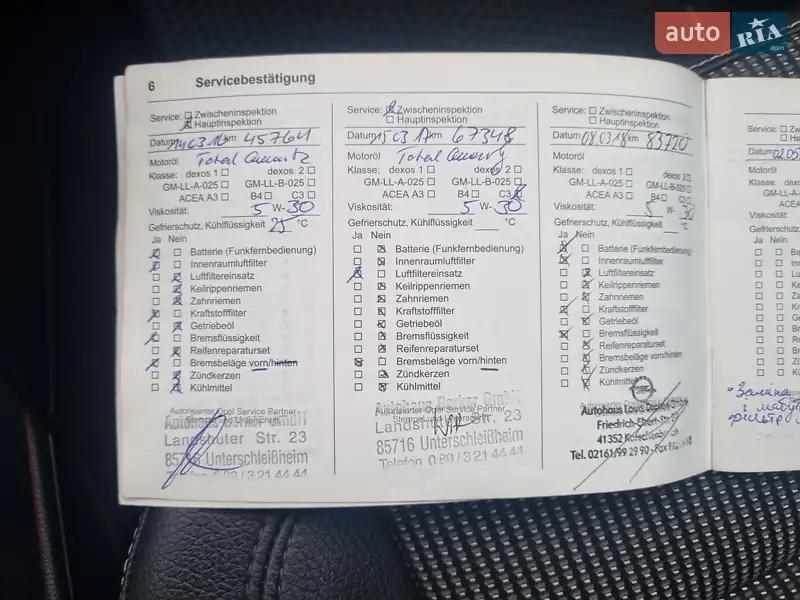 auto RIA .com
6 Servicebestätigung
Service: Zwischeninspektion
Hauptinspektion
Datum 14 03 16 km 45764
Motoröl Total Quartz
Klasse: dexos 1 dexos 2
GM-LL-A-025 GM-LL-B-025
ACEA A3 B4 C3
Viskosität: 5 W- 30
Gefrierschutz, Kühlflüssigkeit 25 °C
Ja Nein
Batterie (Funkfernbedienung)
Innenraumluftfilter
Luftfiltereinsatz
Keilrippenriemen
Zahnriemen
Kraftstofffilter
Getriebeöl
Bremsflüssigkeit
Reifenreparaturset
Bremsbeläge vorn/hinten
Zündkerzen
Kühlmittel
Autorisierter Opel Service Partner
Landshuter Str. 23
85716 Unterschleißheim
089/3214444
Service: Zwischeninspektion
Hauptinspektion
Datum 15 03 17 km 67348
Motoröl Total
Klasse: dexos 1 dexos 2
GM-LL-A-025 GM-LL-B-025
ACEA A3 B4 C3
Viskosität: 5 W- 30
Gefrierschutz, Kühlflüssigkeit °C
Ja Nein
Batterie (Funkfernbedienung)
Innenraumluftfilter
Luftfiltereinsatz
Keilrippenriemen
Zahnriemen
Kraftstofffilter
Getriebeöl
Bremsflüssigkeit
Reifenreparaturset
Bremsbeläge vorn/hinten
Zündkerzen
Kühlmittel
Autohaus GmbH
Autorisierter Opel Service Partner
Landshuter Str. 23
85716 Unterschleißheim
Telefon 089/3214444
Service: Zwischeninspektion
Hauptinspektion
Datum 08.03.18 km 83720
Motoröl
Klasse: dexos 1 dexos 2
GM-LL-A-025 GM-LL-B-025
ACEA A3 B4 C3
Viskosität: 5 W- 30
Gefrierschutz, Kühlflüssigkeit °C
Ja Nein
Batterie (Funkfernbedienung)
Innenraumluftfilter
Luftfiltereinsatz
Keilrippenriemen
Zahnriemen
Kraftstofffilter
Getriebeöl
Bremsflüssigkeit
Reifenreparaturset
Bremsbeläge vorn/hinten
Zündkerzen
Kühlmittel
Autohaus Louis
Friedrich-Ebert-Str.
41352
Tel. 02161/99 29 90 - Fax
Service: Z
H
Datum 02.05
Motoröl
Klasse:
GM-LL-A
ACEA
Viskosität:
Gefrierschutz
Ja Nein
Ba
In
Lu
Ke
Za
Kr
Ge
Br
Re
Br
Zü
Kü